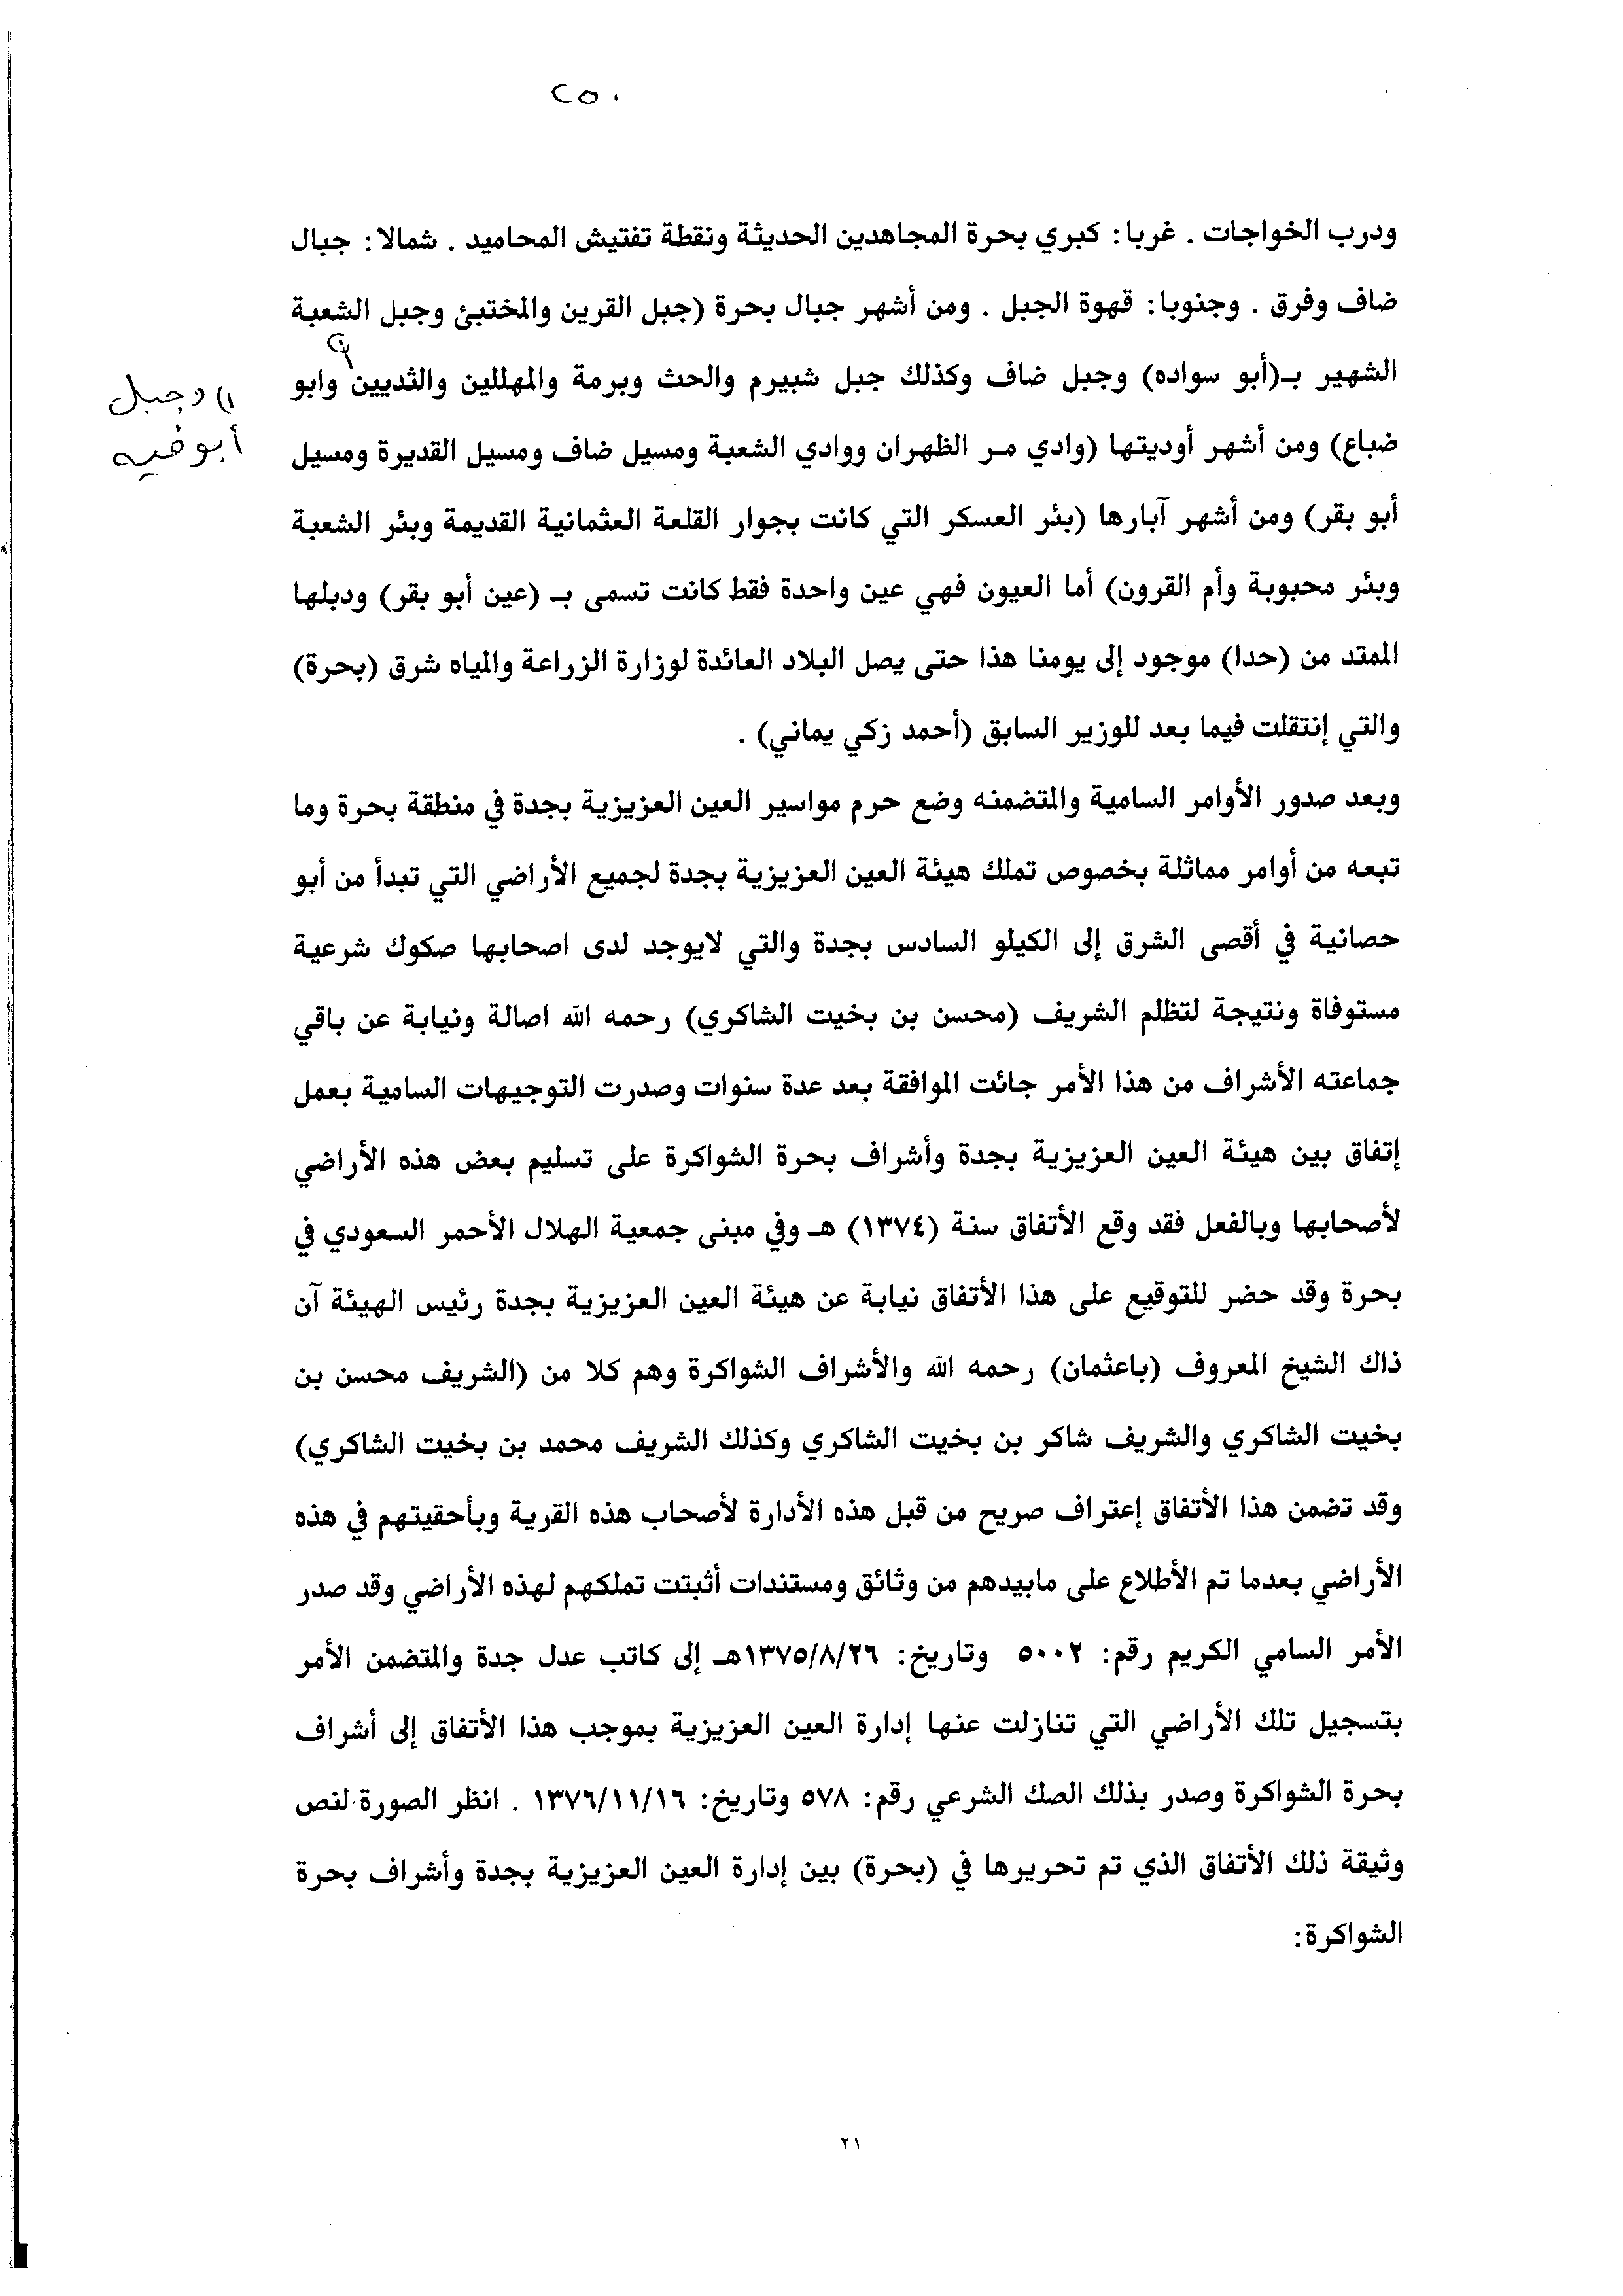 ٢٥٠
ودرب الخواجات . غربا: كبري بحرة المجاهدين الحديثة ونقطة تفتيش المحاميد . شمالا: جبال
ضاف وفرق . وجنوبا: قهوة الجبل . ومن أشهر جبال بحرة (جبل القرين والمختبئ وجبل الشعبة
(١
الشهير بـ(أبو سواده) وجبل ضاف وكذلك جبل شبيرم والحث وبرمة والمهللين والثديين وابو
١) وجبل
ضباع) ومن أشهر أوديتها (وادي مر الظهران ووادي الشعبة ومسيل ضاف ومسيل القديرة ومسيل
أبو
أبو بقر) ومن أشهر آبارها (بئر العسكر التي كانت بجوار القلعة العثمانية القديمة وبئر الشعبة
وبئر محبوبة وأم القرون) أما العيون فهي عين واحدة فقط كانت تسمى بـ (عين أبو بقر) ودبلها
الممتد من (حدا) موجود إلى يومنا هذا حتى يصل البلاد العائدة لوزارة الزراعة والمياه شرق (بحرة)
والتي إنتقلت فيما بعد للوزير السابق (أحمد زكي يماني) .
وبعد صدور الأوامر السامية والمتضمنه وضع حرم مواسير العين العزيزية بجدة في منطقة بحرة وما
تبعه من أوامر مماثلة بخصوص تملك هيئة العين العزيزية بجدة لجميع الأراضي التي تبدأ من أبو
حصانية في أقصى الشرق إلى الكيلو السادس بجدة والتي لايوجد لدى اصحابها صكوك شرعية
مستوفاة ونتيجة لتظلم الشريف (محسن بن بخيت الشاكري) رحمه الله اصالة ونيابة عن باقي
جماعته الأشراف من هذا الأمر جائت الموافقة بعد عدة سنوات وصدرت التوجيهات السامية بعمل
إتفاق بين هيئة العين العزيزية بجدة وأشراف بحرة الشواكرة على تسليم بعض هذه الأراضي
لأصحابها وبالفعل فقد وقع الأتفاق سنة (١٣٧٤) هـ وفي مبنى جمعية الهلال الأحمر السعودي في
بحرة وقد حضر للتوقيع على هذا الأتفاق نيابة عن هيئة العين العزيزية بجدة رئيس الهيئة آن
ذاك الشيخ المعروف (باعثمان) رحمه الله والأشراف الشواكرة وهم كلا من (الشريف محسن بن
بخيت الشاكري والشريف شاكر بن بخيت الشاكري وكذلك الشريف محمد بن بخيت الشاكري)
وقد تضمن هذا الأتفاق إعتراف صريح من قبل هذه الأدارة لأصحاب هذه القرية وبأحقيتهم في هذه
الأراضي بعدما تم الأطلاع على مابيدهم من وثائق ومستندات أثبتت تملكهم لهذه الأراضي وقد صدر
الأمر السامي الكريم رقم: ٥٠٠٢ وتاريخ: ١٣٧٥/٨/٢٦هـ إلى كاتب عدل جدة والمتضمن الأمر
بتسجيل تلك الأراضي التي تنازلت عنها إدارة العين العزيزية بموجب هذا الأتفاق إلى أشراف
بحرة الشواكرة وصدر بذلك الصك الشرعي رقم: ٥٧٨ وتاريخ: ١٣٧٦/١١/١٦ . انظر الصورة لنص
وثيقة ذلك الأتفاق الذي تم تحريرها في (بحرة) بين إدارة العين العزيزية بجدة وأشراف بحرة
الشواكرة:
٢١